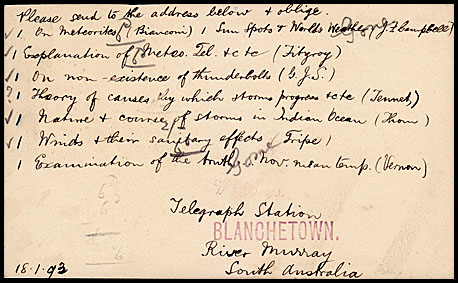 Please send to the address below & oblige.
✓ 1 On Meteorites (Bianconi) 1 Sun Spots & Worlds Weather (J. F Campbell)
✓ 1 Explanation of Meteo. Tel. &c &c (Fitzroy)
✓ 1 On non-existence of thunderbolts (G.J.S.)
? 1 Theory of causes by which storms progress &c &c (Tennet)
✓ 1 Nature & course of storms in Indian Ocean (Thom)
✓ 1 Winds & their sanitary effects (Tripe)
1 Examination of the truth Nov. mean temp. (Vernon)
Telegraph Station
BLANCHETOWN.
River Murray
South Australia
18.1.93